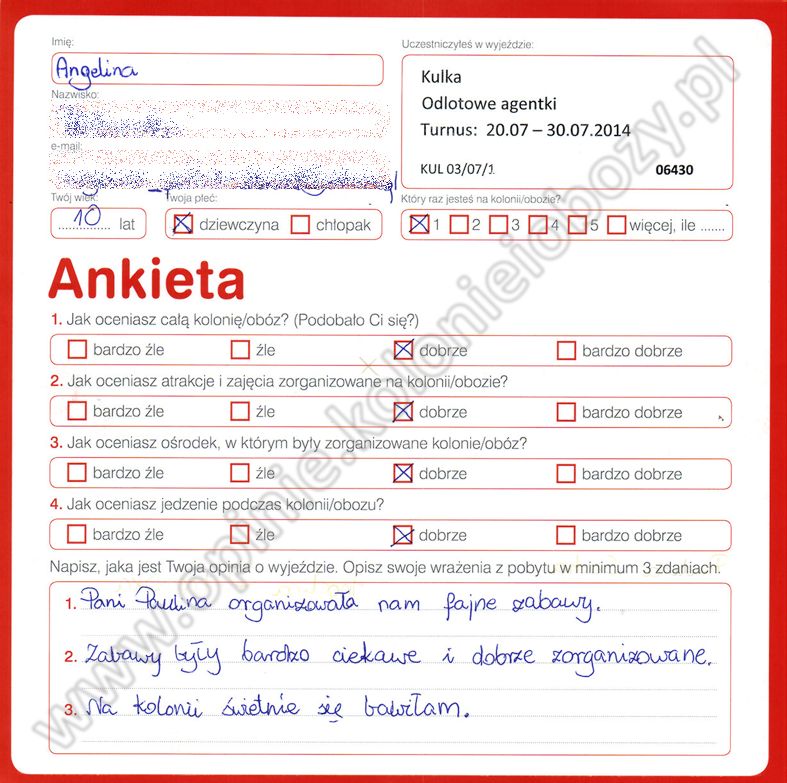 Imię:
Angelina
Nazwisko:
e-mail:
Twój wiek:
10 lat
Twoja płeć:
dziewczyna chłopak
Uczestniczyłeś w wyjeździe:
Kulka
Odlotowe agentki
Turnus: 20.07 – 30.07.2014
KUL 03/07/1 06430
Który raz jesteś na kolonii/obozie?
1 2 3 4 5 więcej, ile .......
Ankieta
1. Jak oceniasz całą kolonię/obóz? (Podobało Ci się?)
bardzo źle źle dobrze bardzo dobrze
2. Jak oceniasz atrakcje i zajęcia zorganizowane na kolonii/obozie?
bardzo źle źle dobrze bardzo dobrze
3. Jak oceniasz ośrodek, w którym były zorganizowane kolonie/obóz?
bardzo źle źle dobrze bardzo dobrze
4. Jak oceniasz jedzenie podczas kolonii/obozu?
bardzo źle źle dobrze bardzo dobrze
Napisz, jaka jest Twoja opinia o wyjeździe. Opisz swoje wrażenia z pobytu w minimum 3 zdaniach.
1. Pani Paulina organizowała nam fajne zabawy.
2. Zabawy były bardzo ciekawe i dobrze zorganizowane.
3. Na kolonii świetnie się bawiłam.
www.opinie.kolonieiobozy.pl